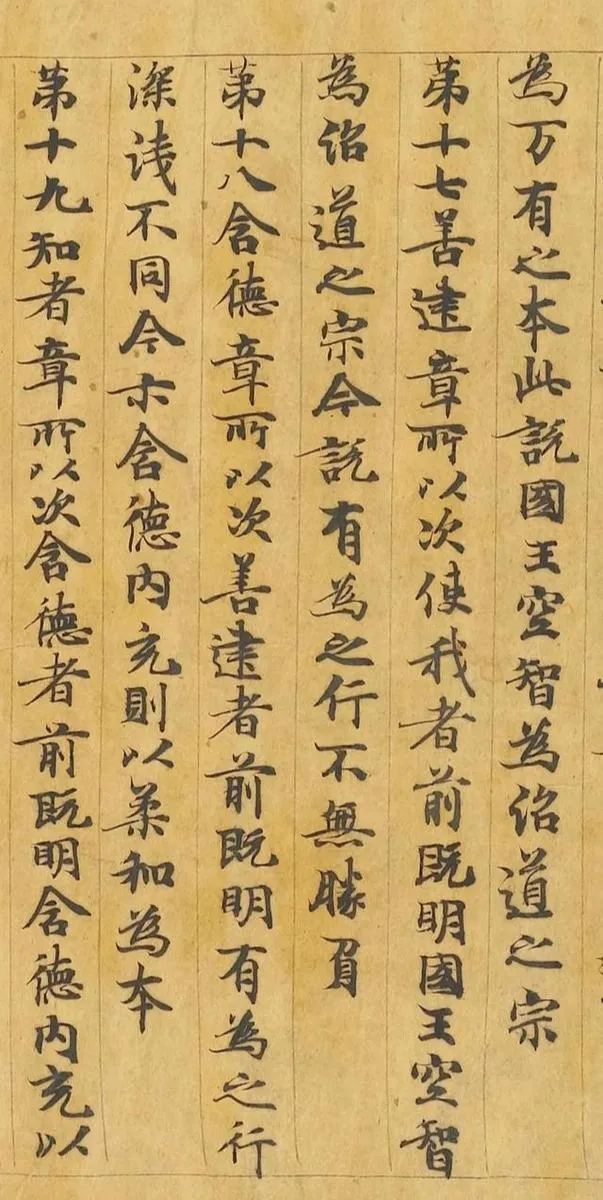 為万有之本此說國王空智為治道之宗
第十七善建章所以次使我者前既明國王空智
為治道之宗今說有為之行不無勝負
第十八含徳章所以次善建者前既明有為之行
深淺不同今亦含徳内充則以柔和為本
第十九知者章所以次含徳者前既明含徳内充以